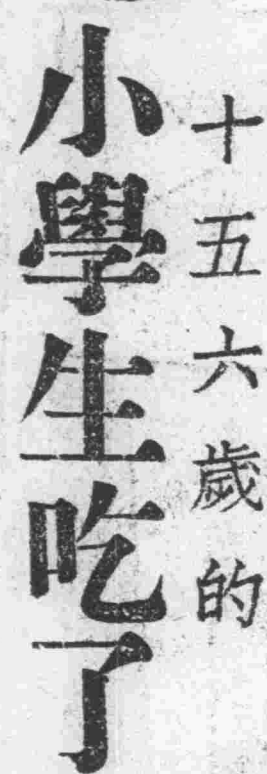 十五六歲的
小學生吃了